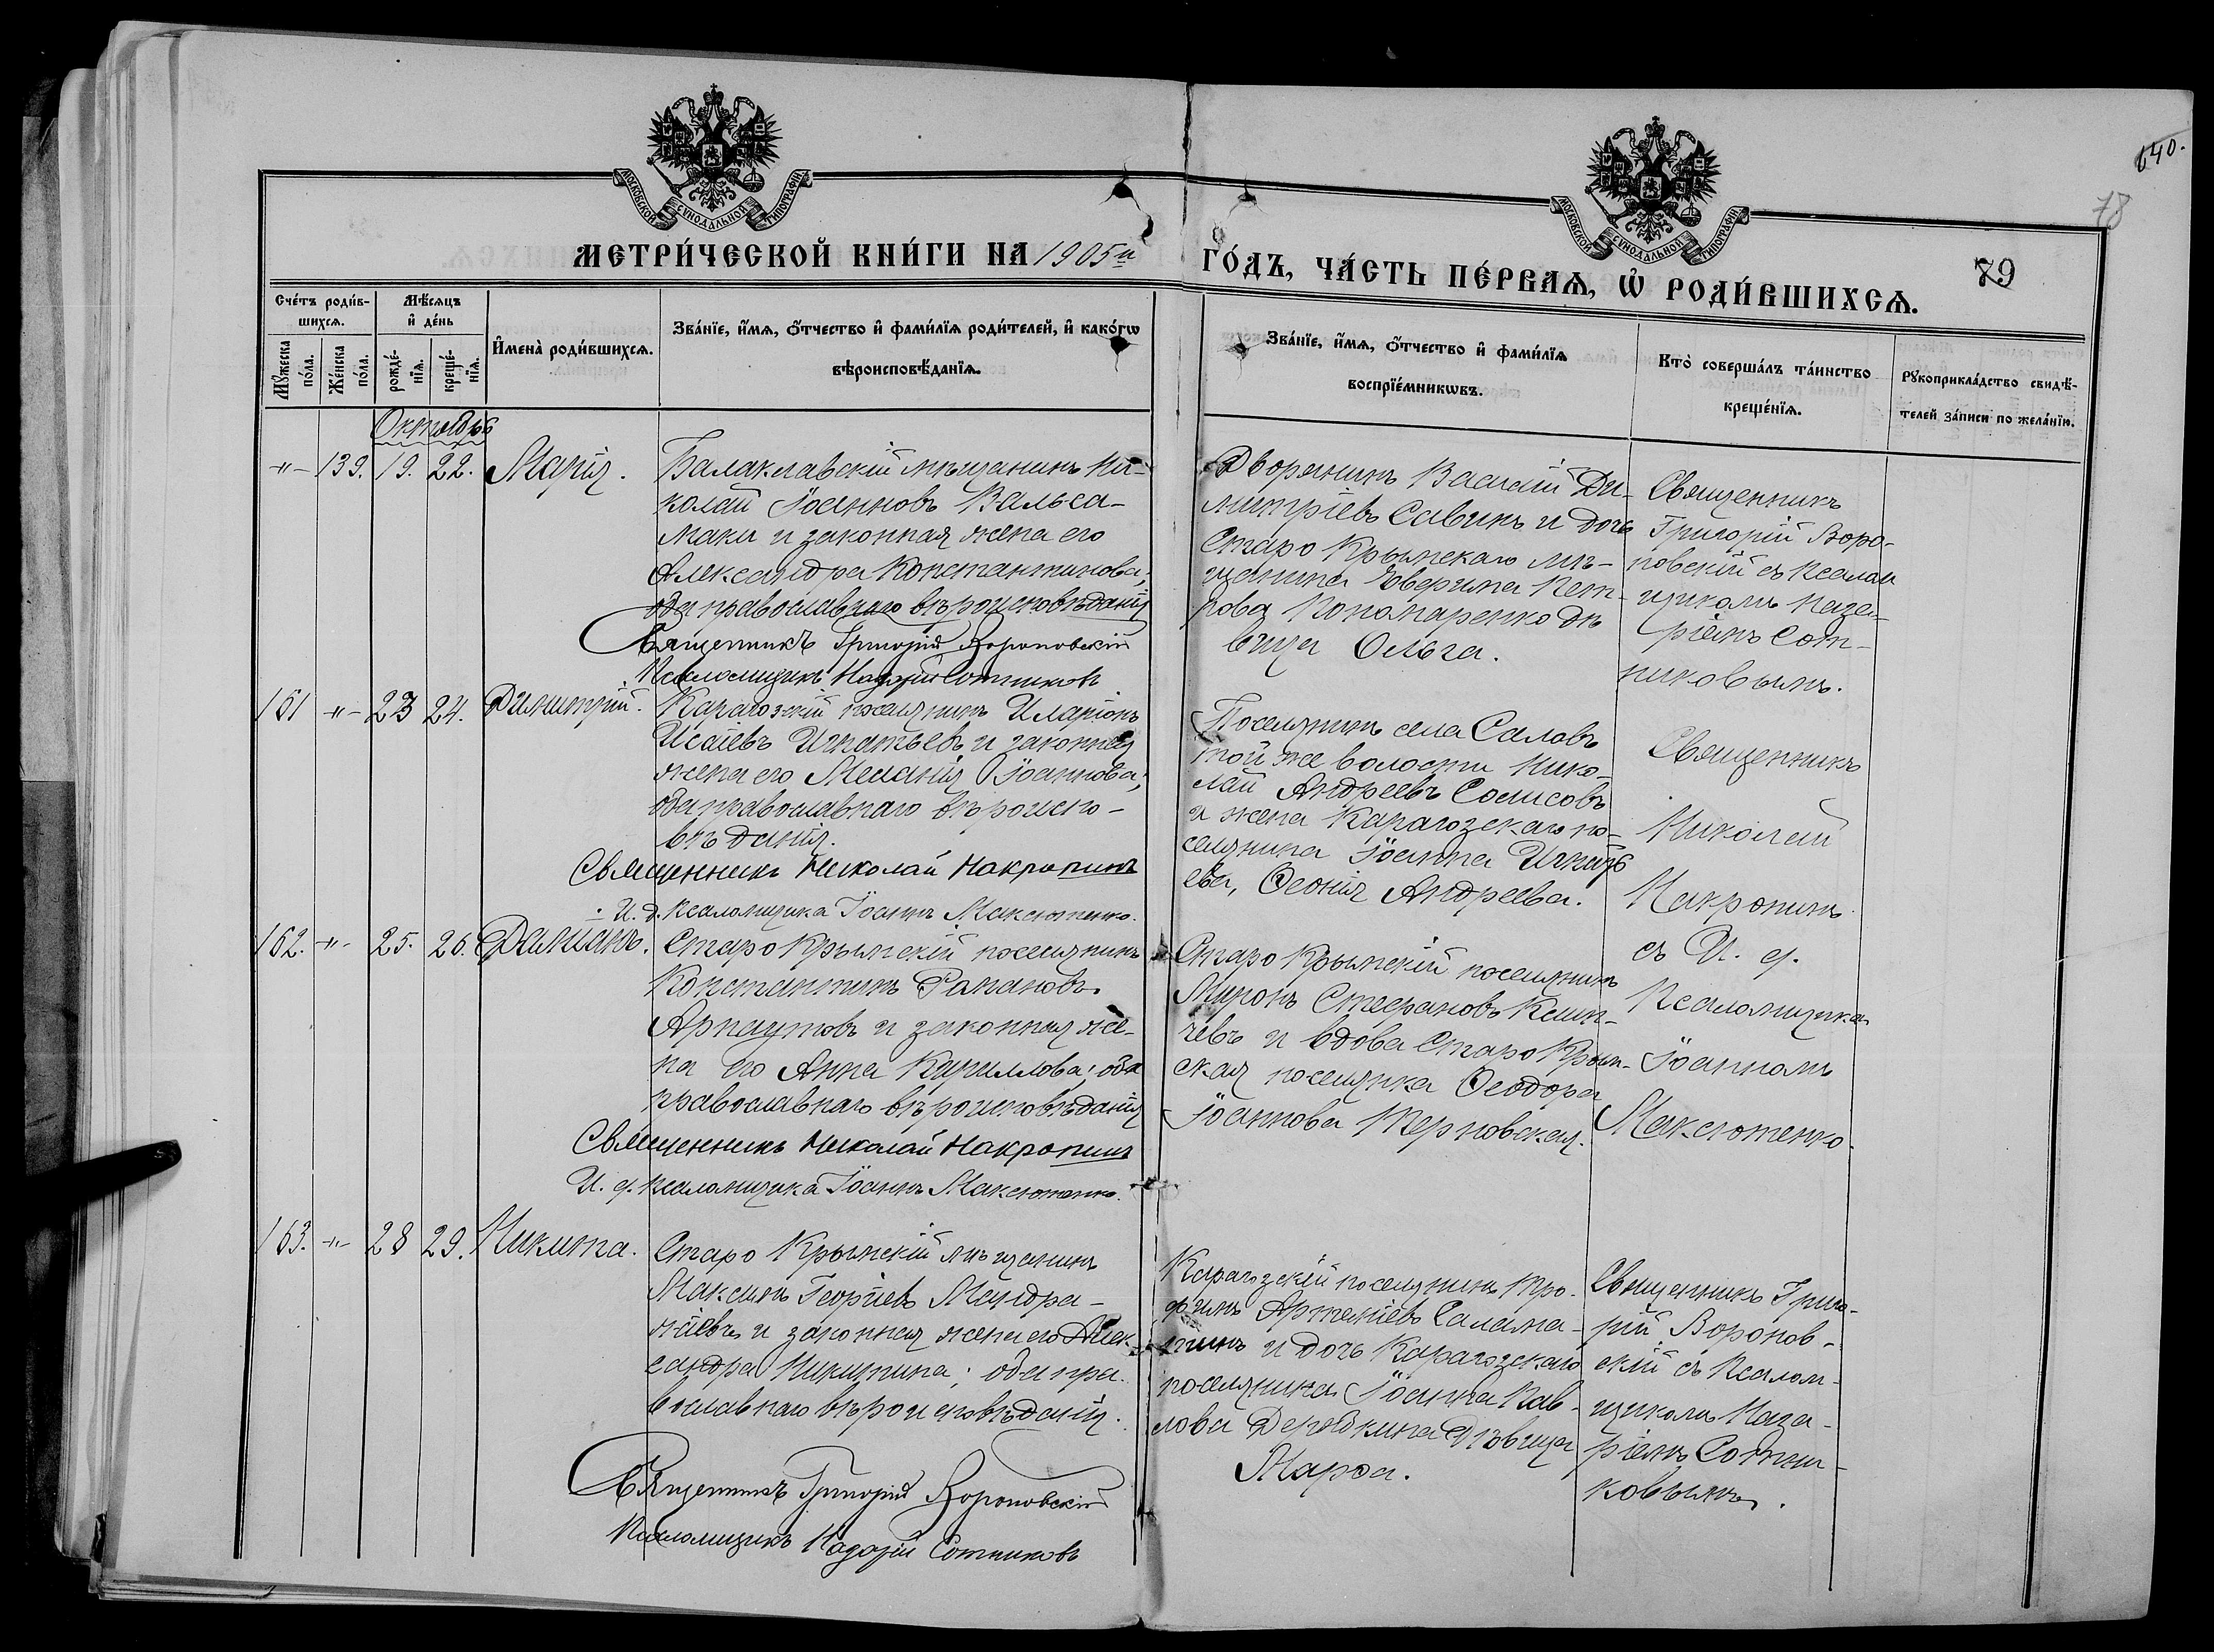 640.
78
79
МОСКОВСКОЙ СѴНОДАЛЬНОЙ ТИПОГРАФІИ
МОСКОВСКОЙ СѴНОДАЛЬНОЙ ТИПОГРАФІИ
МЕТРИ́ЧЕСКОЙ КНИ́ГИ НА 1905й
ГО́ДЪ, ЧА́СТЬ ПЕ́РВАѦ, Ѡ҆ РОДИ́ВШИХСѦ.
Сче́тъ роди́в-
шихсѧ.
Мѣ́сѧцъ
и҆ де́нь
Мꙋ́жеска
по́ла.
Же́нска
по́ла.
рожде́-
нїѧ.
креще́-
нїѧ.
И҆мена̀ роди́вшихсѧ.
Зва́нїе, и҆́мѧ, ѻ҆́тчество и҆ фами́лїѧ роди́телей, и҆ како́гѡ
вѣроисповѣ́данїѧ.
Зва́нїе, и҆́мѧ, ѻ҆́тчество и҆ фами́лїѧ
воспрїе́мникѡвъ.
Кто̀ соверша́лъ та́инство
креще́нїѧ.
Рꙋкоприкла́дство свидѣ́-
телей за́писи по жела́нїю.
Октябрь
-"- 139. 19. 22. Марія.
Балаклавскій мѣщанинъ Ни-
колай Іоанновъ Вальса-
маки и законная жена его
Александра Константинова;
оба православнаго вѣроисповѣданія
Священникъ Григорій Вороновскій
Псаломщикъ Назарій Сотниковъ
Дворянинъ Василій Ди-
митріевъ Савинъ и дочь
Старо Крымскаго мѣ-
щанина Пет-
рова Пономаренко дѣ
вица Ольга.
Священникъ
Григорій Воро-
новскій съ псалом
щикомъ Наза-
ріемъ Сот-
никовымъ.
161 -"- 23 24. Димитрій.
Карагозскій поселянинъ Иларіонъ
Исаіевъ Игнатьевъ и законная
жена его Меланія Іоаннова;
оба православнаго вѣроиспо-
вѣданія.
Священникъ Николай Макропинъ
И. д. псаломщика Іоаннъ Максютенко.
Поселянинъ села Саловъ
той же волости Нико-
лай Андреевъ
и жена Карагозскаго по-
селянина Іоанна Игнать
ева, Ѳеонія Андреева.
Священникъ
Николай
Макропинъ
съ И. д.
Псаломщика
Іоанномъ
Максютенко.
162. -"- 25. 26. Даміанъ.
Старо Крымскій поселянинъ
Константинъ
Арнаутовъ и законная же-
на его Анна Кириллова; оба
православнаго вѣроисповѣданія
Священникъ Николай Макропинъ
И. д. псаломщика Іоаннъ Максютенко.
Старо Крымскій поселянинъ
Миронъ Стефановъ
чевъ и вдова Старо Крым-
ская поселянка Ѳеодора
Іоаннова Терновская.
163. -"- 28 29. Никита.
Старо Крымскій мѣщанинъ
Максимъ Георгіевъ Мандра-
жіевъ и законная жена его Алек-
сандра Никитина; оба пра-
вославнаго вѣроисповѣданія.
Священникъ Григорій Вороновскій
Псаломщикъ Назарій Сотниковъ
Карагозскій поселянинъ Тро-
фимъ Артеміевъ Салама-
тинъ и дочь Карагозскаго
поселянина Іоанна Пав-
лова Дерюбкина дѣвица
Марѳа.
Священникъ Григо-
рій Воронов-
скій съ псалом-
щикомъ Наза-
ріемъ Сотни-
ковымъ.